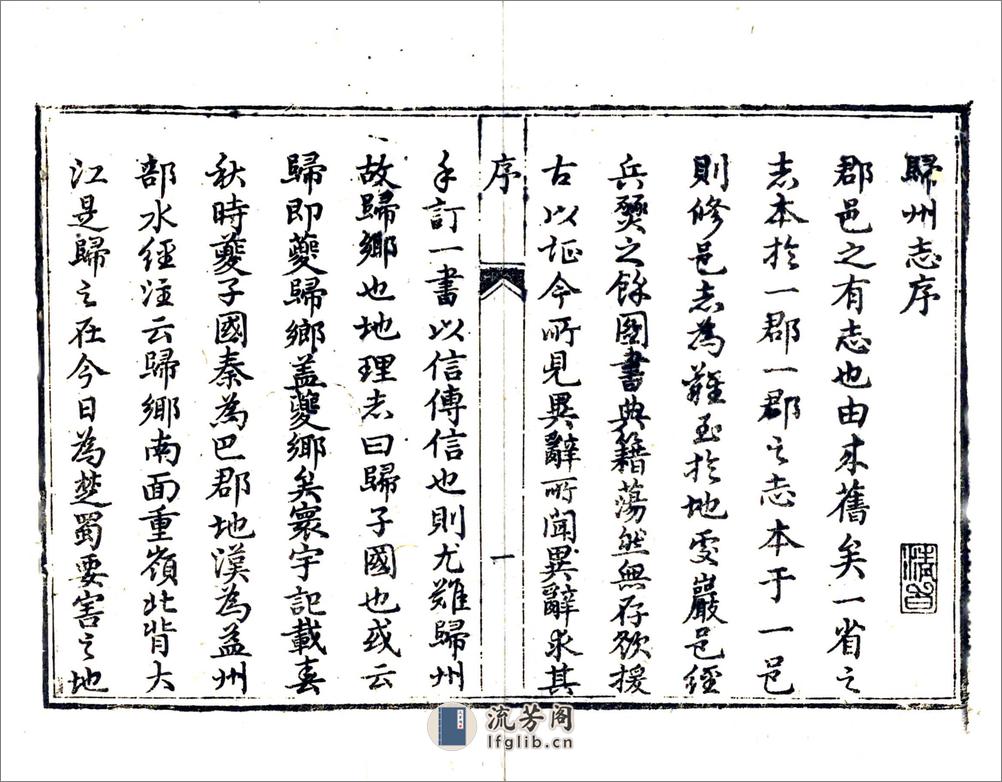 歸州志序
郡邑之有志也由来舊矣一省之
志本於一郡一郡之志本于一邑
則修邑志為難至於地處巖邑經
兵燹之餘圖書典籍蕩然無存欲援
古以证今所見異辭所聞異辭求其
序
一
手訂一書以信傳信也則尤難歸州
故歸鄉也地理志曰歸子國也或云
歸即夔歸鄉盖夔鄉矣寰宇記載春
秋時夔子國秦為巴郡地漢為益州
部水经注云歸鄉南面重嶺北背大
江是歸之在今日為楚蜀要害之地
流芳阁
lfglib.cn